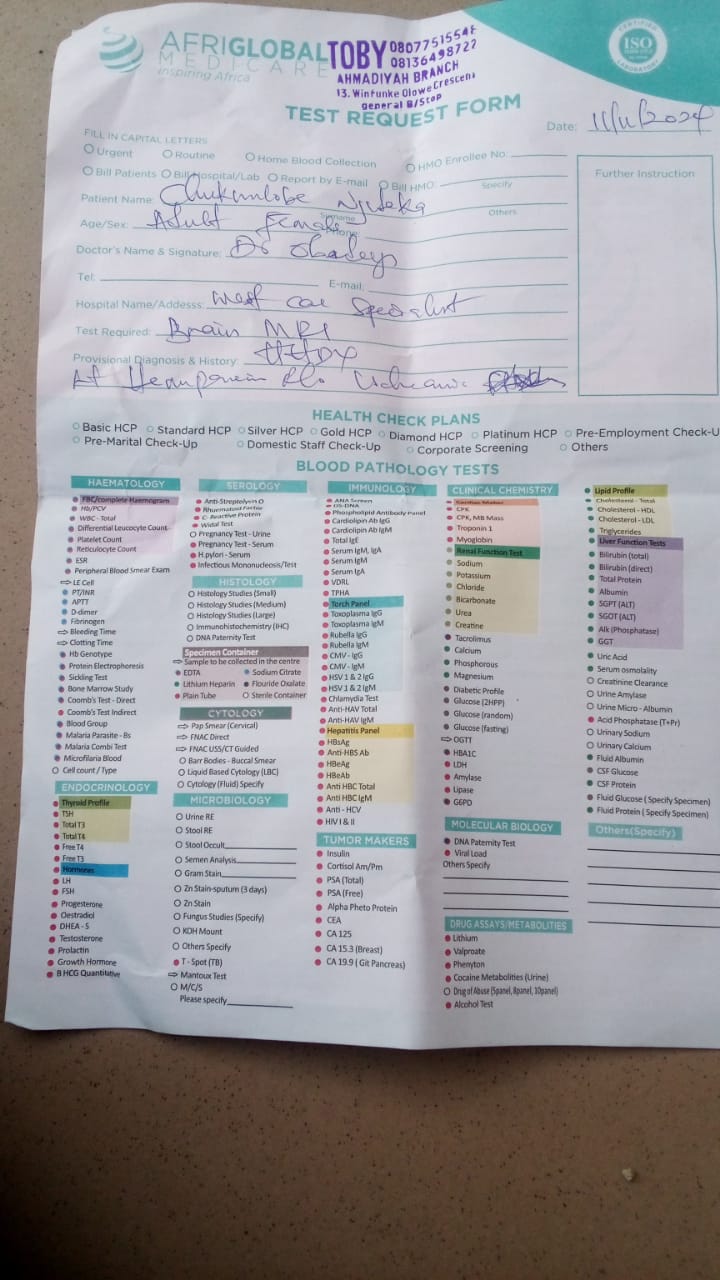 AFRIGLOBAL
MEDICARE
Inspiring Africa
TOBY 08077515548
08136498727
AHMADIYAH BRANCH
13. Winfunke Olowe Crescent
general B/Stop
CERTIFIED
ISO
LABORATORY
TEST REQUEST FORM
Date: 11/11/2024
FILL IN CAPITAL LETTERS
Urgent Routine Home Blood Collection HMO Enrollee No:
Bill Patients Bill Hospital/Lab Report by E-mail Bill HMO: Specify
Further Instruction
Patient Name:
Surname Others
Age/Sex: Adult female Phone:
Doctor's Name & Signature: Dr
Tel: E-mail:
Hospital Name/Addesss: West Specialist
Test Required: Brain MRI
Provisional Diagnosis & History:
HEALTH CHECK PLANS
Basic HCP Standard HCP Silver HCP Gold HCP Diamond HCP Platinum HCP Pre-Employment Check-U
Pre-Marital Check-Up Domestic Staff Check-Up Corporate Screening Others
BLOOD PATHOLOGY TESTS
HAEMATOLOGY
FBC/complete Haemogram
Hb/PCV
WBC - Total
Differential Leucocyte Count
Platelet Count
Reticulocyte Count
ESR
Peripheral Blood Smear Exam
LE Cell
PT/INR
APTT
D-dimer
Fibrinogen
Bleeding Time
Clotting Time
Hb Genotype
Protein Electrophoresis
Sickling Test
Bone Marrow Study
Coomb's Test - Direct
Coomb's Test Indirect
Blood Group
Malaria Parasite - Bs
Malaria Combi Test
Microfilaria Blood
Cell count / Type
ENDOCRINOLOGY
Thyroid Profile
TSH
Total T3
Total T4
Free T4
Free T3
Hormones
LH
FSH
Progesterone
Oestradiol
DHEA - S
Testosterone
Prolactin
Growth Hormone
B HCG Quantitative
SEROLOGY
Anti-Streptolysin O
Rheumatoid Factor
C- Reactive Protein
Widal Test
Pregnancy Test - Urine
Pregnancy Test - Serum
H.pylori - Serum
Infectious Mononucleosis/Test
HISTOLOGY
Histology Studies (Small)
Histology Studies (Medium)
Histology Studies (Large)
Immunohistochemistry (IHC)
DNA Paternity Test
Specimen Container
Sample to be collected in the centre
EDTA Sodium Citrate
Lithium Heparin Flouride Oxalate
Plain Tube Sterile Container
CYTOLOGY
Pap Smear (Cervical)
FNAC Direct
FNAC USS/CT Guided
Barr Bodies - Buccal Smear
Liquid Based Cytology (LBC)
Cytology (Fluid) Specify
MICROBIOLOGY
Urine RE
Stool RE
Stool Occult
Semen Analysis
Gram Stain
Zn Stain-sputum (3 days)
Zn Stain
Fungus Studies (Specify)
KOH Mount
Others Specify
T - Spot (TB)
Mantoux Test
M/C/S
Please specify
IMMUNOLOGY
ANA Screen
DS-DNA
Phospholipid Antibody Panel
Cardiolipin Ab IgG
Cardiolipin Ab IgM
Total IgE
Serum IgM, IgA
Serum IgM
Serum IgA
VDRL
TPHA
Torch Panel
Toxoplasma IgG
Toxoplasma IgM
Rubella IgG
Rubella IgM
CMV - IgG
CMV - IgM
HSV 1 & 2 IgG
HSV 1 & 2 IgM
Chlamydia Test
Anti-HAV Total
Anti-HAV IgM
Hepatitis Panel
HBsAg
Anti-HBS Ab
HBeAg
HBeAb
Anti HBC Total
Anti HBC IgM
Anti - HCV
HIV I & II
TUMOR MAKERS
Insulin
Cortisol Am/Pm
PSA (Total)
PSA (Free)
Alpha Pheto Protein
CEA
CA 125
CA 15.3 (Breast)
CA 19.9 ( Git Pancreas)
CLINICAL CHEMISTRY
Cardiac Maker
CPK
CPK, MB Mass
Troponin 1
Myoglobin
Renal Function Test
Sodium
Potassium
Chloride
Bicarbonate
Urea
Creatine
Tacrolimus
Calcium
Phosphorous
Magnesium
Diabetic Profile
Glucose (2HPP)
Glucose (random)
Glucose (fasting)
OGTT
HBA1C
LDH
Amylase
Lipase
G6PD
MOLECULAR BIOLOGY
DNA Paternity Test
Viral Load
Others Specify
DRUG ASSAYS/METABOLITIES
Lithium
Valproate
Phenyton
Cocaine Metabolities (Urine)
Drug of Abuse (5panel, 8panel, 10panel)
Alcohol Test
Lipid Profile
Cholesterol - Total
Cholesterol - HDL
Cholesterol - LDL
Triglycerides
Liver Function Tests
Bilirubin (total)
Bilirubin (direct)
Total Protein
Albumin
SGPT (ALT)
SGOT (ALT)
Alk (Phosphatase)
GGT
Uric Acid
Serum osmolality
Creatinine Clearance
Urine Amylase
Urine Micro - Albumin
Acid Phosphatase (T+Pr)
Urinary Sodium
Urinary Calcium
Fluid Albumin
CSF Glucose
CSF Protein
Fluid Glucose ( Specify Specimen)
Fluid Protein ( Specify Specimen)
Others(Specify)